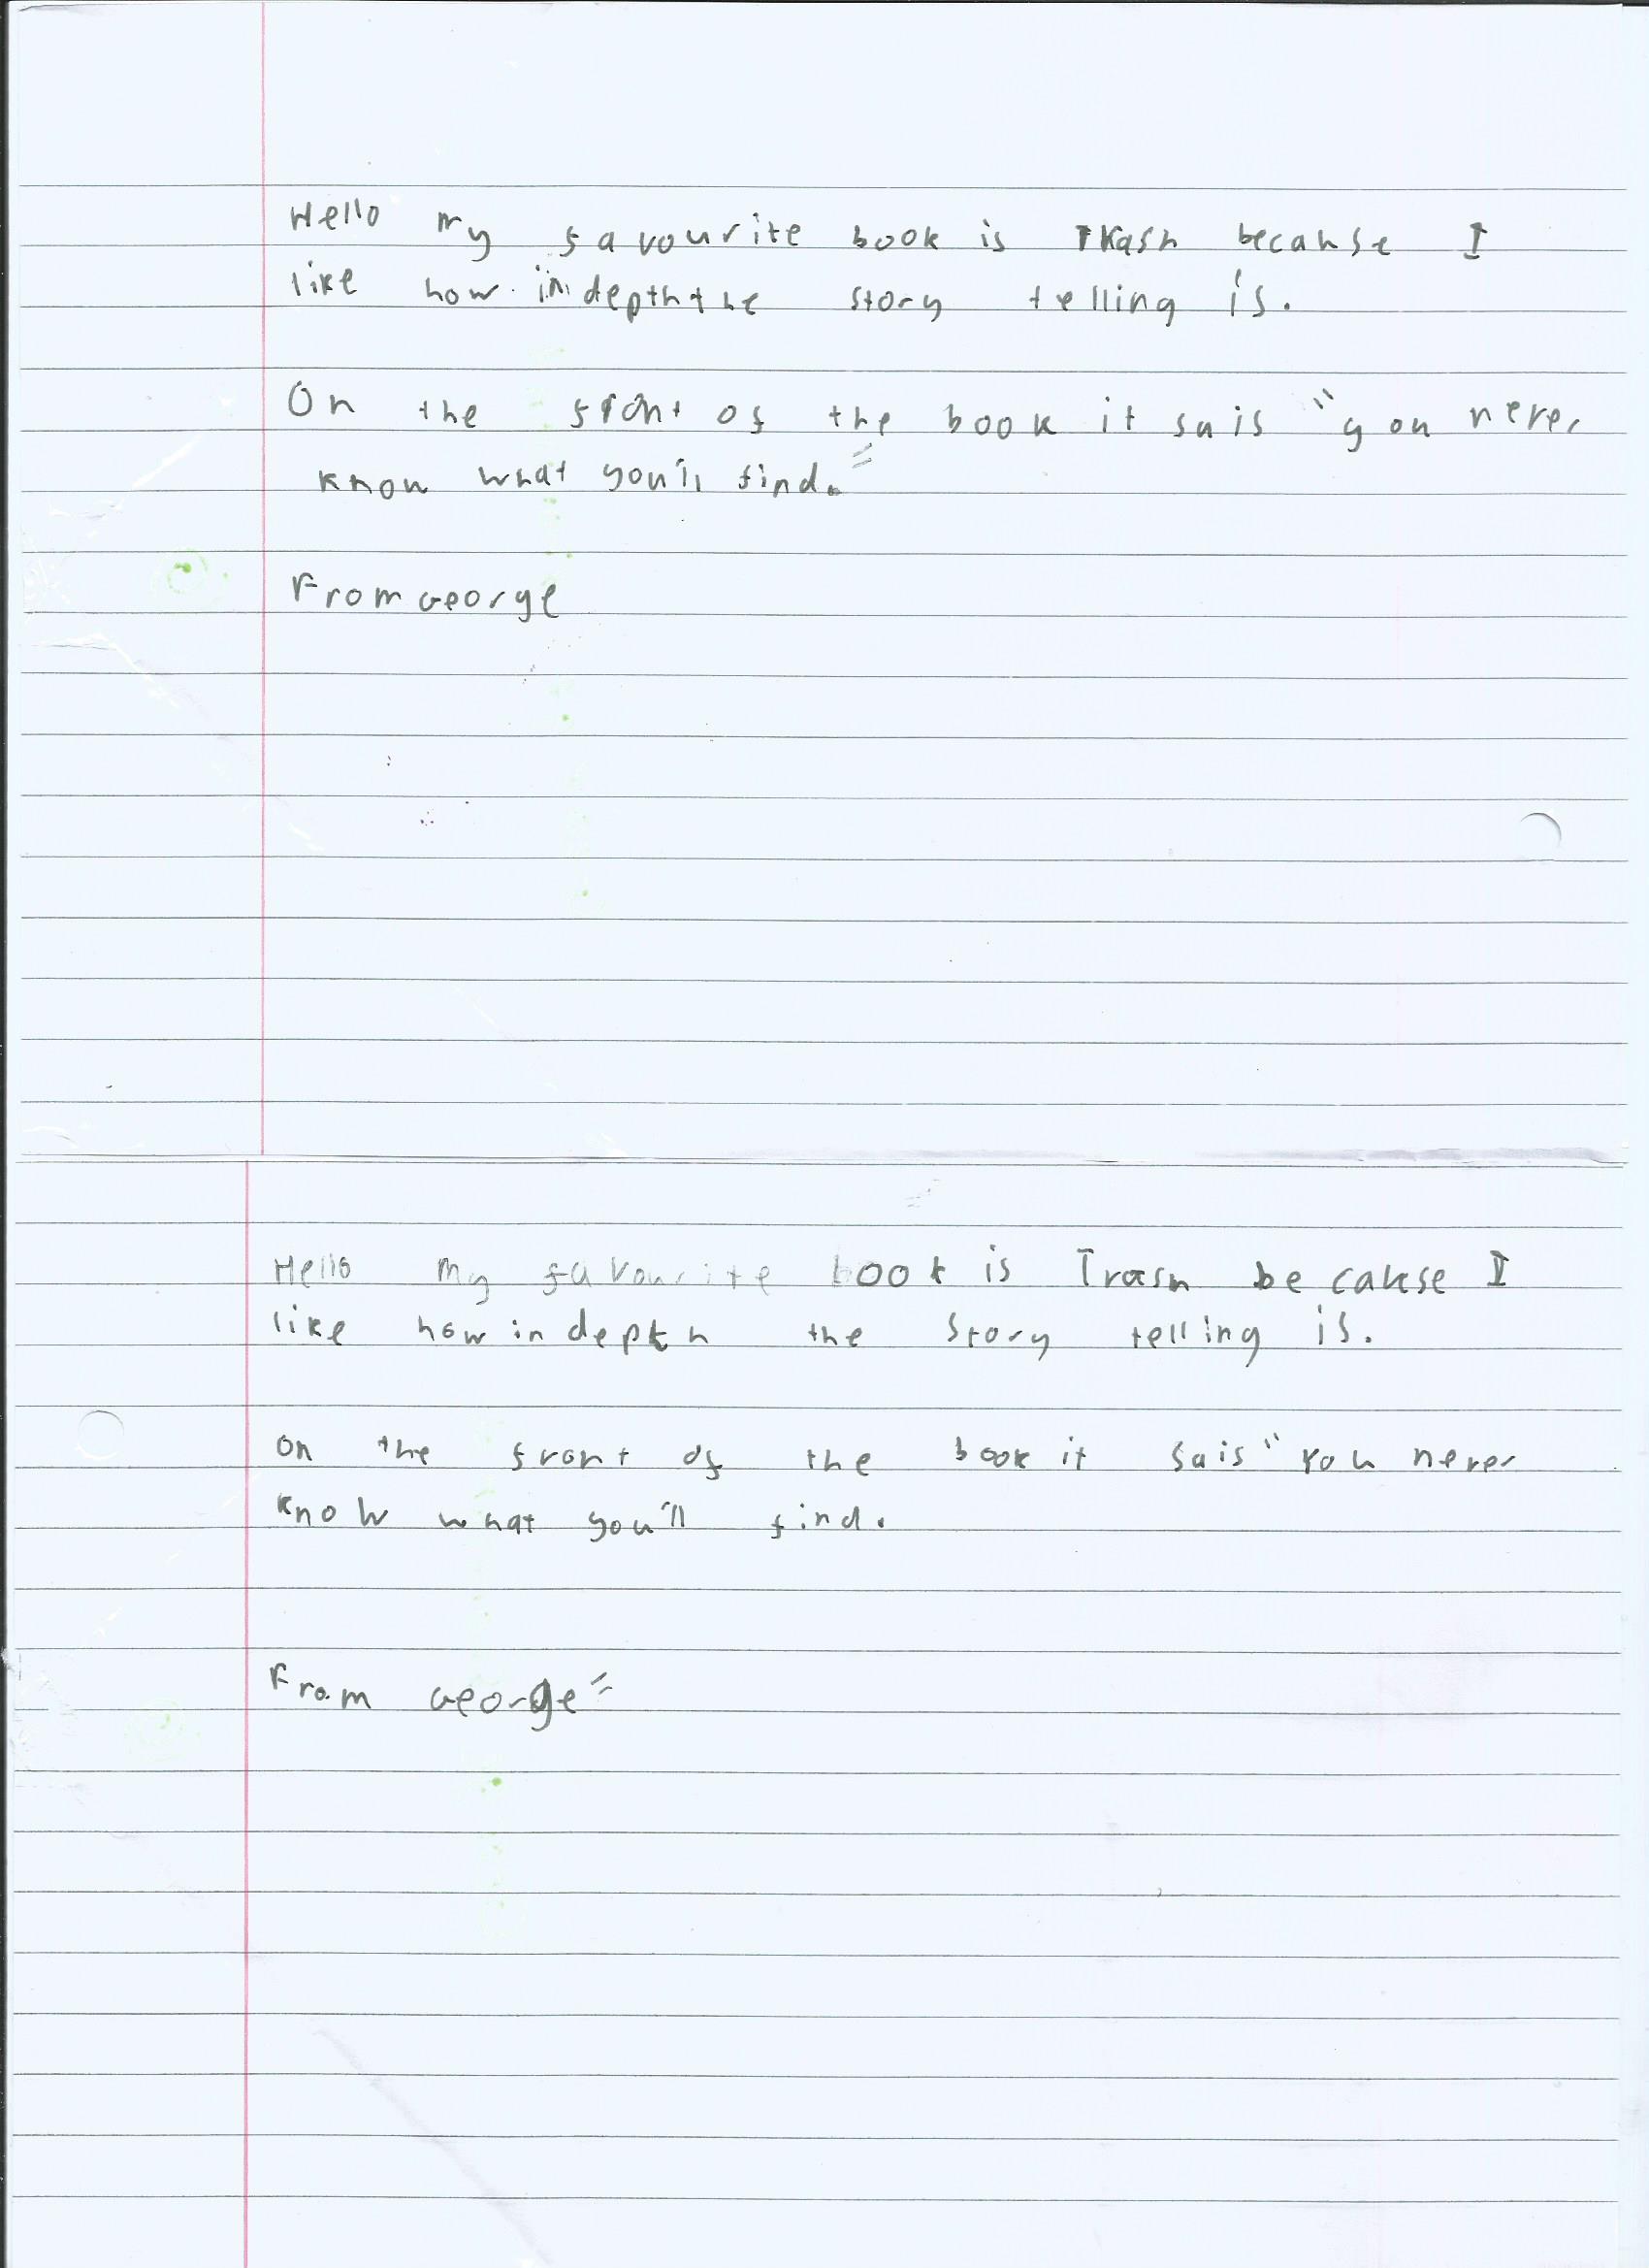 Hello my favourite book is Trash because I
like how in depth the story telling is.
On the front of the book it sais "you never
know what you'll find."
From George
Hello my favourite book is Trash because I
like how in depth the story telling is.
On the front of the book it sais "You never
know what you'll find.
From George"